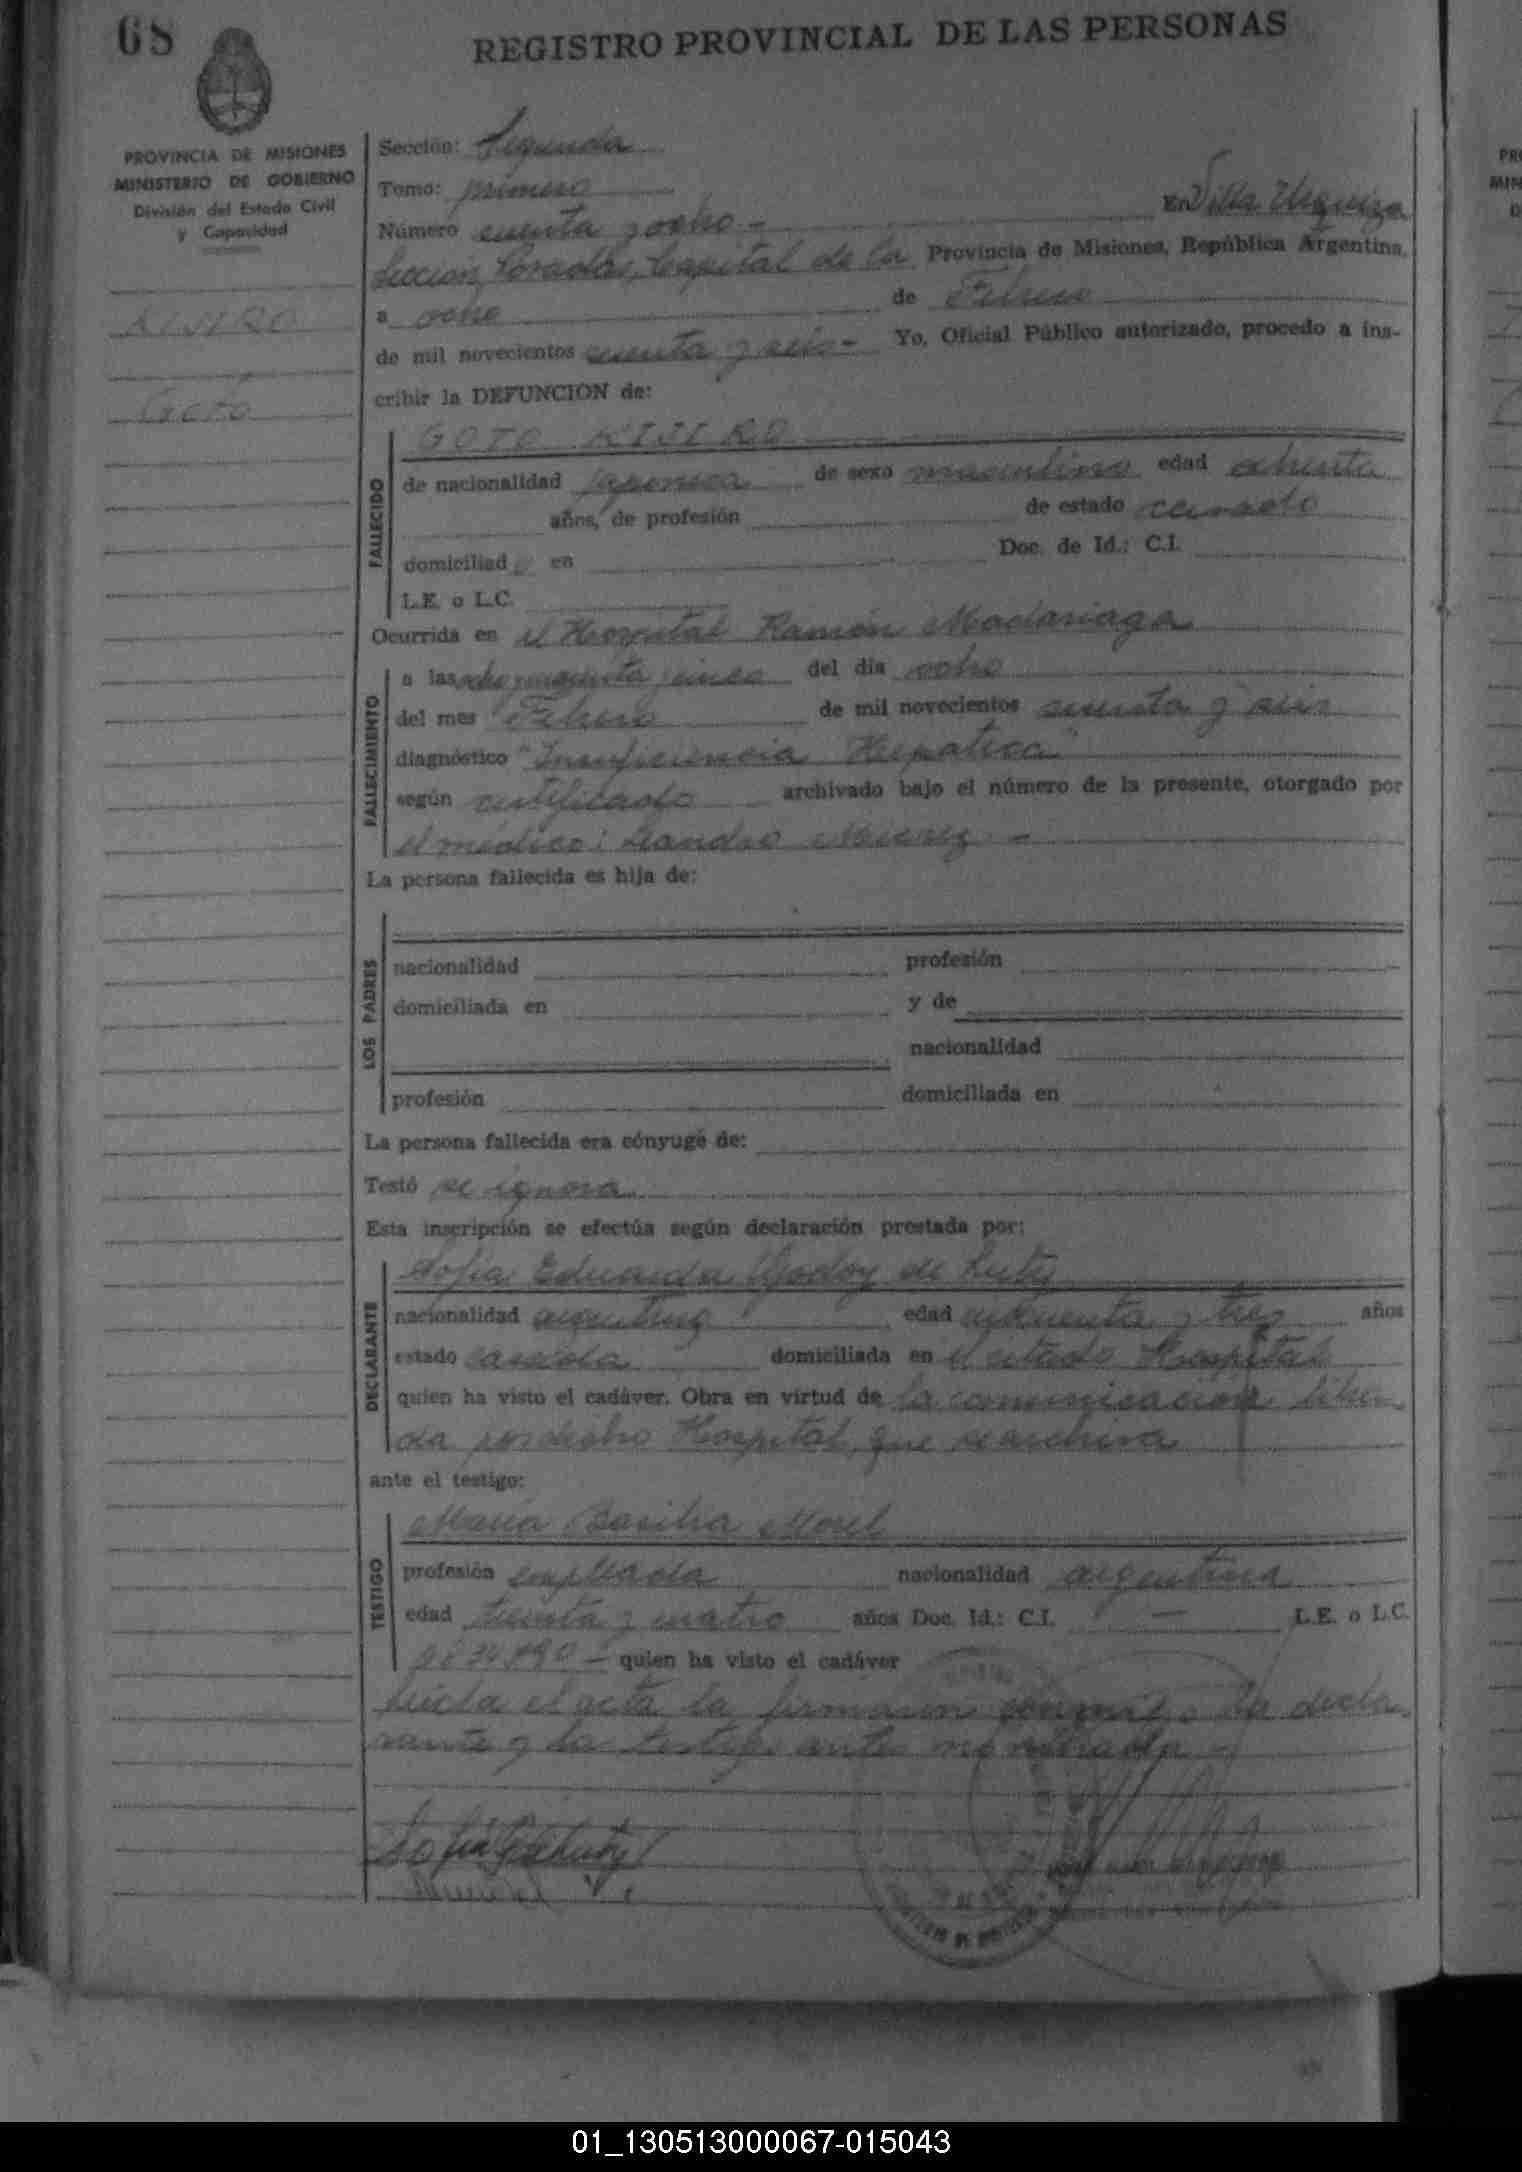 68
REGISTRO PROVINCIAL DE LAS PERSONAS
PROVINCIA DE MISIONES
MINISTERIO DE GOBIERNO
División del Estado Civil
y Capacidad
KIJIRO
GOTO
Sección: Segunda
Tomo: primero
Número sesenta y ocho.-
En Villa Urquiza
Sección Posadas, Capital de la Provincia de Misiones, República Argentina,
a ocho de Febrero
de mil novecientos sesenta y seis- Yo, Oficial Público autorizado, procedo a ins-
cribir la DEFUNCION de:
FALLECIDO
GOTO KIJIRO
de nacionalidad japonesa de sexo masculino edad ochenta
años, de profesión de estado casado
domiciliad o en Doc. de Id.: C.I.
L.E. o L.C.
Ocurrida en el Hospital Ramón Madariaga
FALLECIMIENTO
a las ocho y cincuenta y cinco del día ocho
del mes Febrero de mil novecientos sesenta y seis
diagnóstico "Insuficiencia Hepatica"
según certificado archivado bajo el número de la presente, otorgado por
el médico: Leandro -
La persona fallecida es hija de:
LOS PADRES
nacionalidad profesión
domiciliada en y de
nacionalidad
profesión domiciliada en
La persona fallecida era cónyuge de:
Testó se ignora
Esta inscripción se efectúa según declaración prestada por:
DECLARANTE
Sofia Eduarda Godoy de
nacionalidad argentina edad cincuenta y tres años
estado casada domiciliada en el citado Hospital
quien ha visto el cadáver. Obra en virtud de la comunicación libra
da por dicho Hospital, que se archiva
ante el testigo:
TESTIGO
Maria Basilia Morel
profesión empleada nacionalidad argentina
edad treinta y cuatro años Doc. Id.: C.I. — L.E. o L.C.
- quien ha visto el cadáver
Leída el acta la firmaron conmigo la decla
rante y la testigo antes nombrada -
01_130513000067-015043